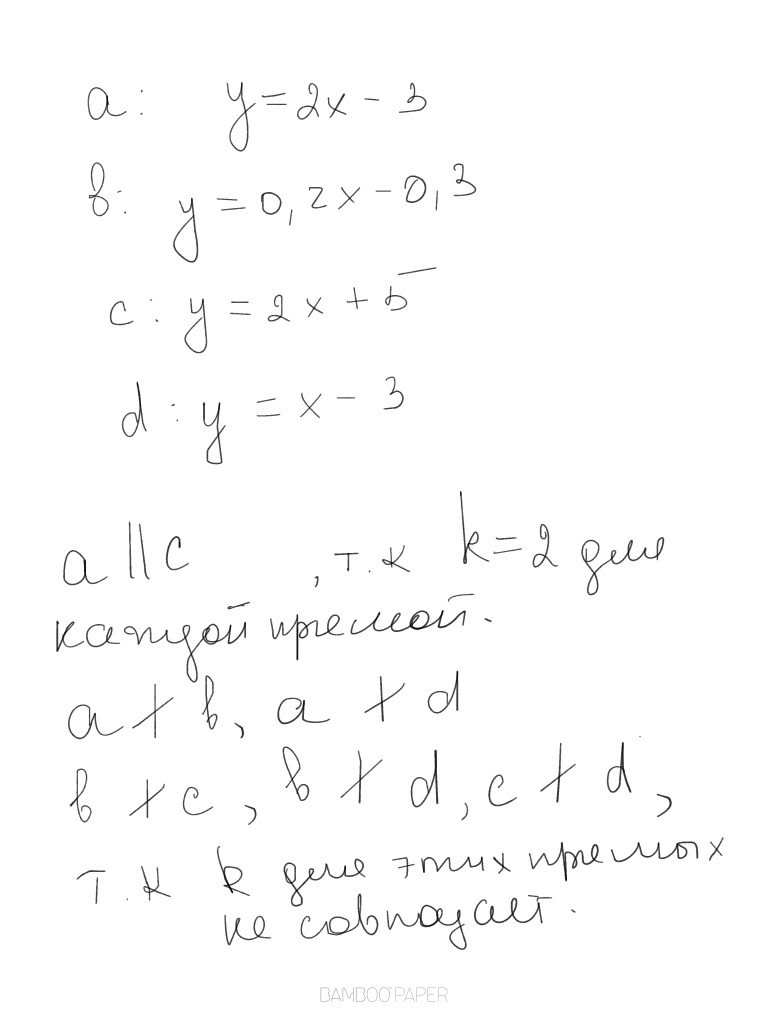 a: y = 2x - 3
b: y = 0,2x - 0,3
c: y = 2x + 5
d: y = x - 3
a || c , т.к k = 2 для
каждой прямой.
a ∤ b, a ∤ d
b ∤ c, b ∤ d, c ∤ d,
т.к k для этих прямых
не совпадает.
BAMBOO PAPER